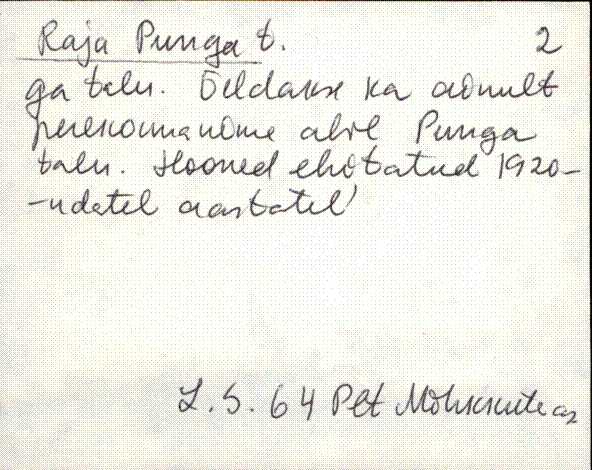 Raja Punga t. 2
ga talu. Öeldakse ka ainult
perekonnanime abil Punga
talu. Hooned ehitatud 1920-
-ndatel aastatel
L. S. 64 Plt